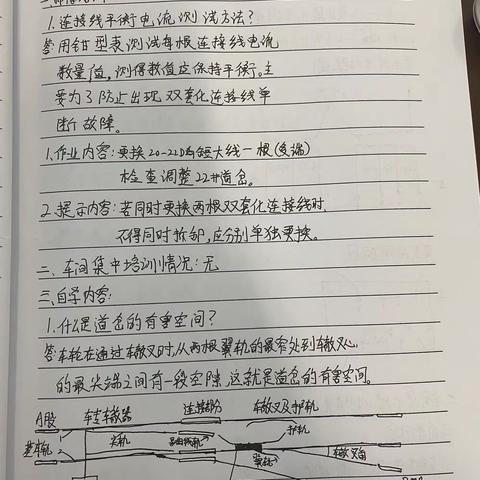 1.连接线平衡电流测试方法?
答:用钳型表测试每根连接线电流
数量值,测得数值应保持平衡。主
要为了防止出现双套化连接线单
断故障。
1.作业内容:更换20-22D安短大线一根(岔端)
检查调整22#道岔。
2.提示内容:若同时更换两根双套化连接线时,
不得同时拆卸,应分别单独更换。
二、车间集中培训情况:无
三、自学内容:
1.什么是道岔的有害空间?
答:车轮在通过车辙叉时,从两根翼轨的最窄处到辙叉心
的最尖端之间有一段空隙,这就是道岔的有害空间。
A股 转辙器 连接部分 辙叉及护轨
基本轨 尖轨 护轨
翼轨 辙叉角